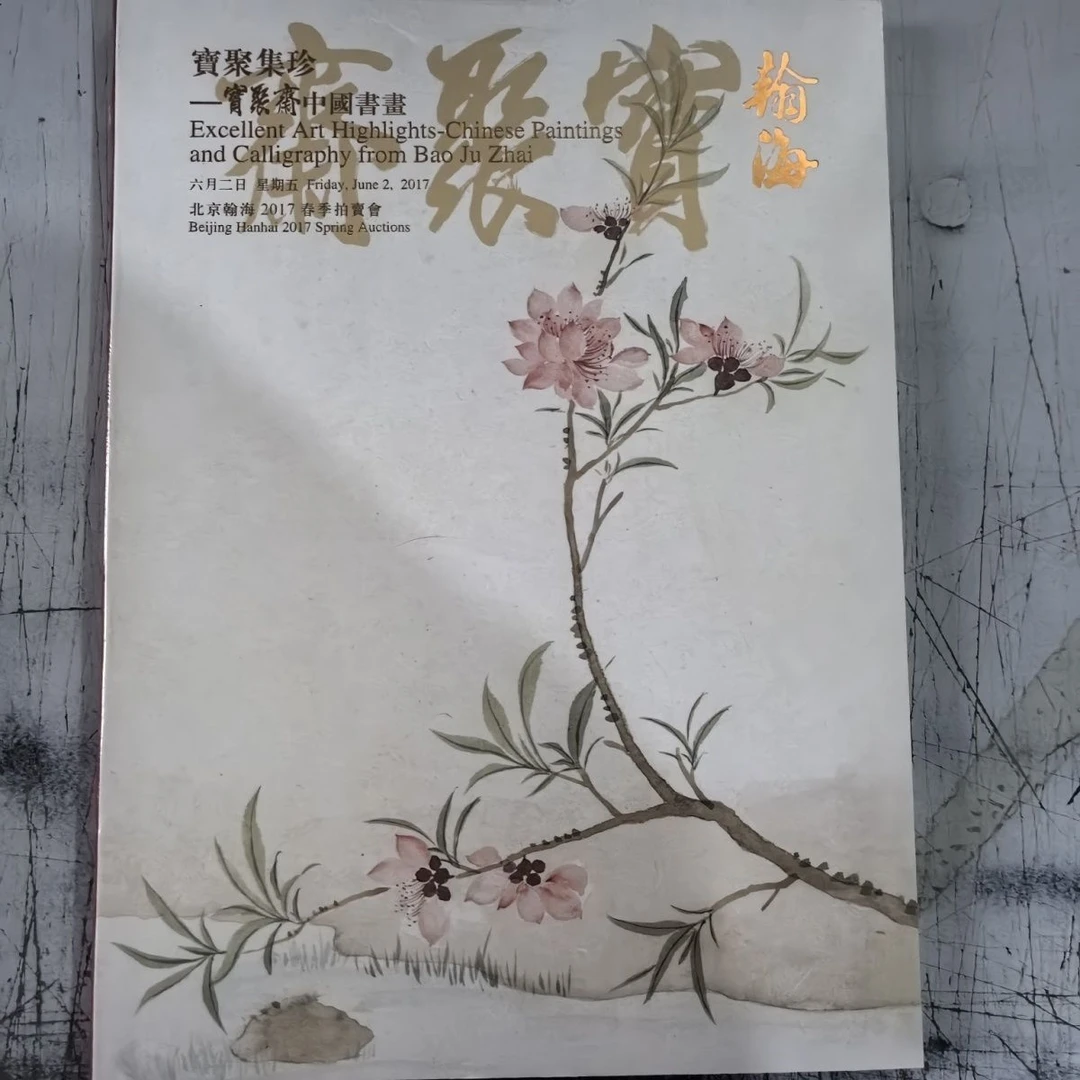 寶聚齋
寶聚集珍
—寶聚齋中國書畫
Excellent Art Highlights-Chinese Paintings
and Calligraphy from Bao Ju Zhai
六月二日 星期五 Friday, June 2, 2017
北京翰海 2017 春季拍賣會
Beijing Hanhai 2017 Spring Auctions
翰海